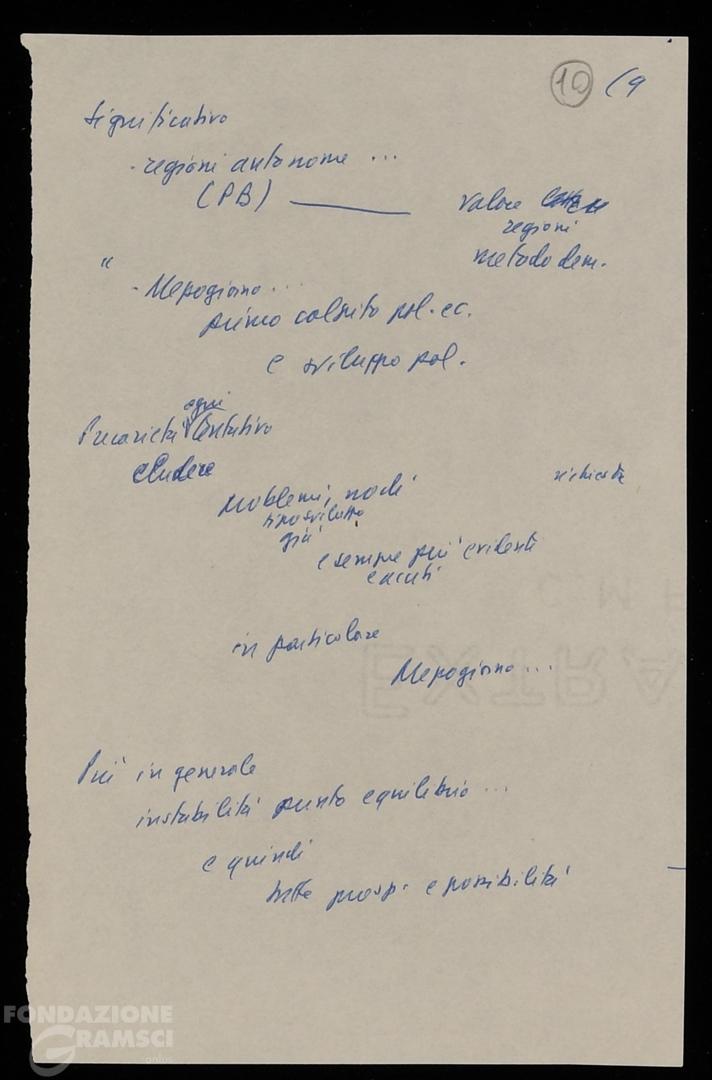 10 (9
Significativo
- regioni autonome ...
(PB) ———— valore
regioni
metodo dem.
" - Mezzogiorno ...
primo colpito pol. ec.
e sviluppo pol.
ogni
Precarietà tentativo
eludere
problemi, nodi richieste
tipo sviluppo
già
e sempre più evidenti
e acuti
in particolare
Mezzogiorno ...
Più in generale
instabilità punto equilibrio ...
e quindi
tutte prosp. e possibilità
EXTRA
FONDAZIONE
GRAMSCI
onlus